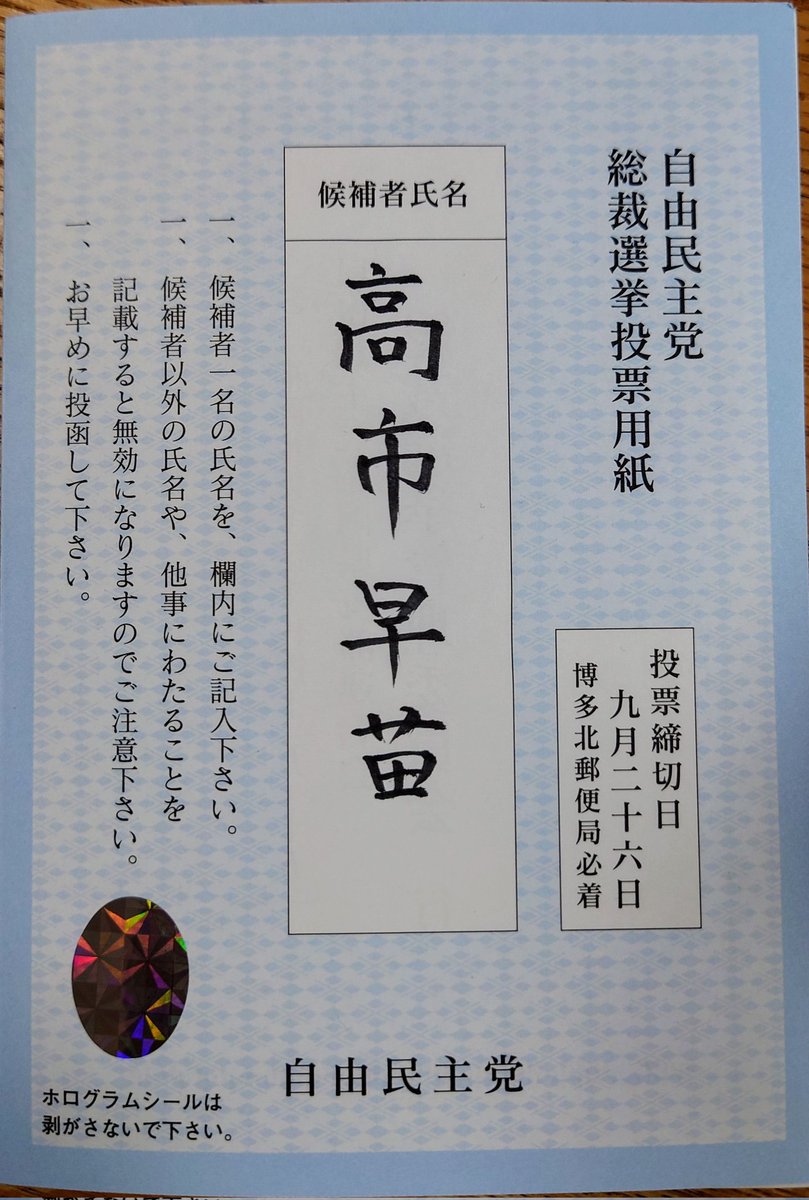 自由民主党
総裁選挙投票用紙
投票締切日
九月二十六日
博多北郵便局必着
候補者氏名
高市早苗
一、候補者一名の氏名を、欄内にご記入下さい。
一、候補者以外の氏名や、他事にわたることを
記載すると無効になりますのでご注意下さい。
一、お早めに投函して下さい。
自由民主党
ホログラムシールは
剥がさないで下さい。